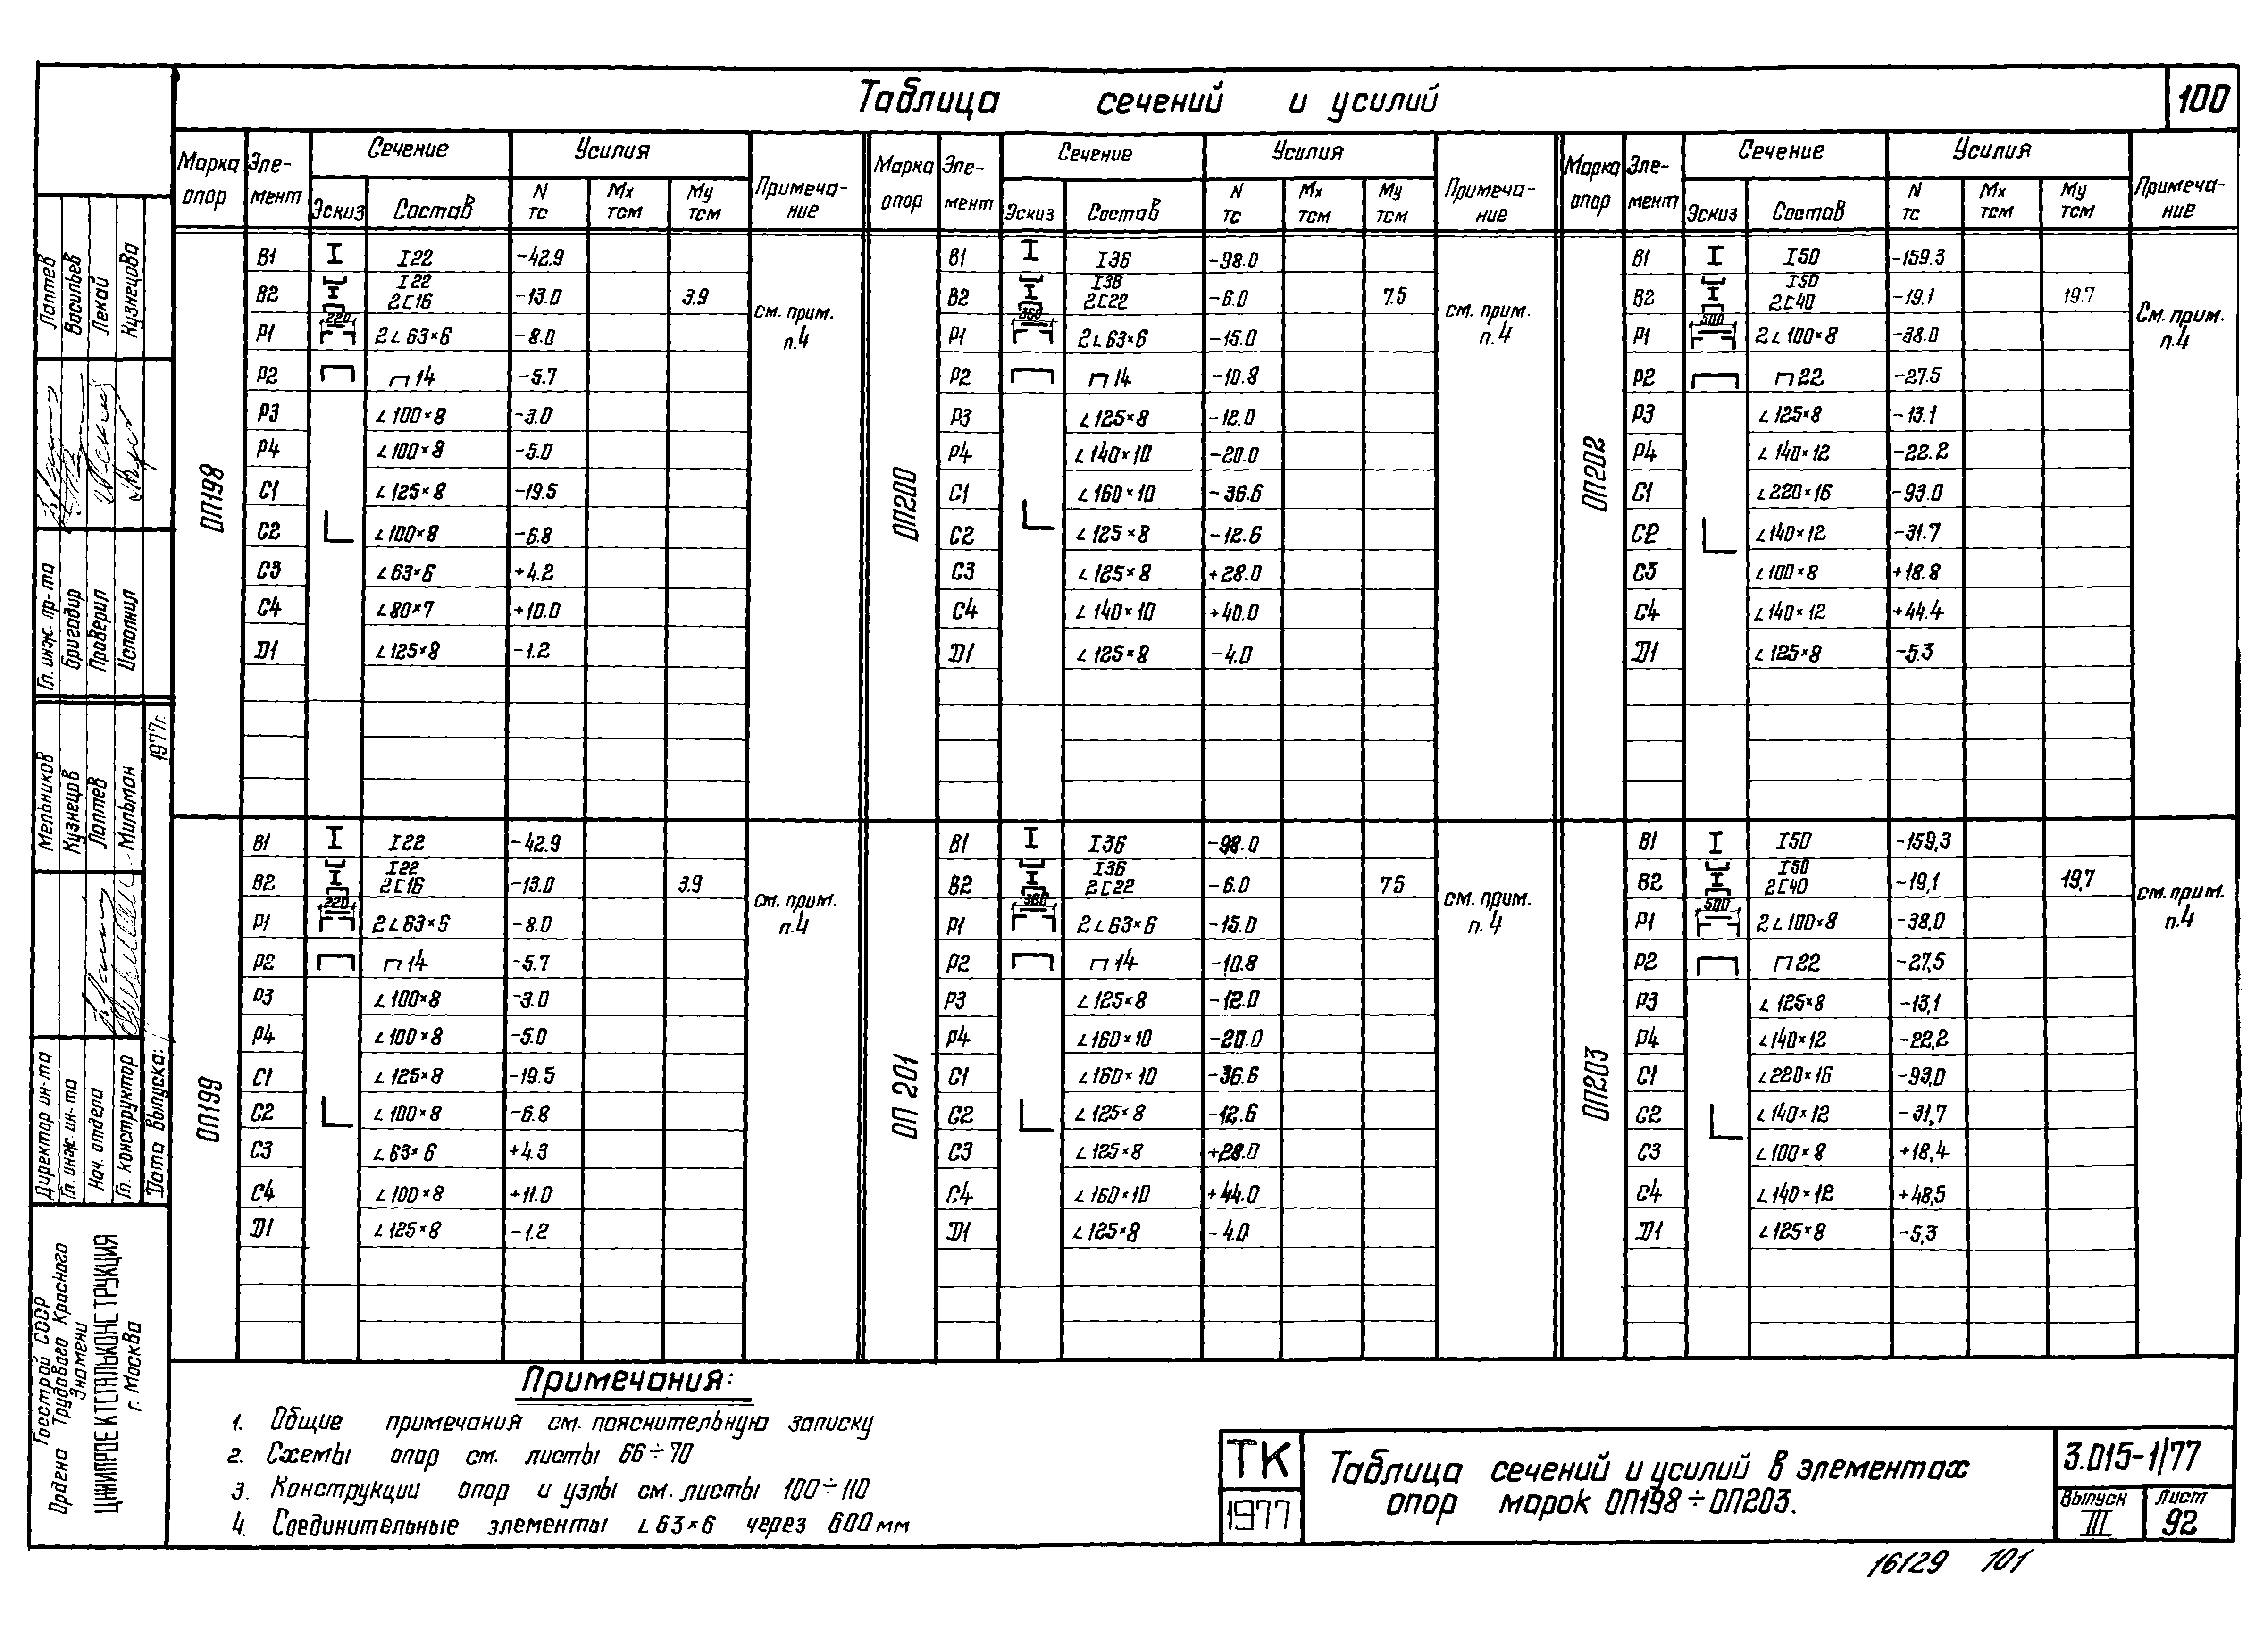 Таблица сечений и усилий
100
Марка опор Элемент Сечение Усилия Примечание
Эскиз Состав N тс Mx тсм My тсм
ОП198
В1 I22 -42.9
В2 I22 2[16 -13.0 3.9 см. прим. п.4
Р1 220 2∟63×6 -8.0
Р2 ⊓14 -5.7
Р3 ∟100×8 -3.0
Р4 ∟100×8 -5.0
С1 ∟125×8 -19.5
С2 ∟100×8 -6.8
С3 ∟63×6 +4.2
С4 ∟80×7 +10.0
D1 ∟125×8 -1.2
ОП199
В1 I22 -42.9
В2 I22 2[16 -13.0 3.9 см. прим. п.4
Р1 220 2∟63×5 -8.0
Р2 ⊓14 -5.7
Р3 ∟100×8 -3.0
Р4 ∟100×8 -5.0
С1 ∟125×8 -19.5
С2 ∟100×8 -6.8
С3 ∟63×6 +4.3
С4 ∟100×8 +11.0
D1 ∟125×8 -1.2
Марка опор Элемент Сечение Усилия Примечание
Эскиз Состав N тс Mx тсм My тсм
ОП200
В1 I36 -98.0
В2 I36 2[22 -6.0 7.5 см. прим. п.4
Р1 360 2∟63×6 -15.0
Р2 ⊓14 -10.8
Р3 ∟125×8 -12.0
Р4 ∟140×10 -20.0
С1 ∟160×10 -36.6
С2 ∟125×8 -12.6
С3 ∟125×8 +28.0
С4 ∟140×10 +40.0
D1 ∟125×8 -4.0
ОП 201
В1 I36 -98.0
В2 I36 2[22 -6.0 75 см. прим. п.4
Р1 360 2∟63×6 -15.0
Р2 ⊓14 -10.8
Р3 ∟125×8 -12.0
Р4 ∟160×10 -20.0
С1 ∟160×10 -36.6
С2 ∟125×8 -12.6
С3 ∟125×8 +28.0
С4 ∟160×10 +44.0
D1 ∟125×8 -4.0
Марка опор Элемент Сечение Усилия Примечание
Эскиз Состав N тс Mx тсм My тсм
ОП202
В1 I50 -159.3
В2 I50 2[40 -19.1 19.7 См. прим. п.4
Р1 500 2∟100×8 -38.0
Р2 ⊓22 -27.5
Р3 ∟125×8 -13.1
Р4 ∟140×12 -22.2
С1 ∟220×16 -93.0
С2 ∟140×12 -31.7
С3 ∟100×8 +18.8
С4 ∟140×12 +44.4
D1 ∟125×8 -5.3
ОП203
В1 I50 -159,3
В2 I50 2[40 -19,1 19,7 см. прим. п.4
Р1 500 2∟100×8 -38,0
Р2 ⊓22 -27,5
Р3 ∟125×8 -13,1
Р4 ∟140×12 -22,2
С1 ∟220×16 -93,0
С2 ∟140×12 -31,7
С3 ∟100×8 +18,4
С4 ∟140×12 +48,5
D1 ∟125×8 -5,3
Примечания:
1. Общие примечания см. пояснительную записку
2. Схемы опор см. листы 66÷70
3. Конструкции опор и узлы см. листы 100÷110
4. Соединительные элементы ∟63×6 через 600 мм
ТК
1977
Таблица сечений и усилий в элементах
опор марок ОП198÷ОП203.
3.015-1/77
Выпуск III
Лист 92
16129 101
Гл. инж. пр-та Лаптев
Бригадир Васильев
Проверил Лекай
Исполнил Кузнецова
Директор ин-та Мельников
Гл. инж. ин-та Кузнецов
Нач. отдела Лаптев
Гл. конструктор Мильман
Дата выпуска: 1977г.
Госстрой СССР
Ордена Трудового Красного
Знамени
ЦНИИПРОЕКТСТАЛЬКОНСТРУКЦИЯ
г. Москва